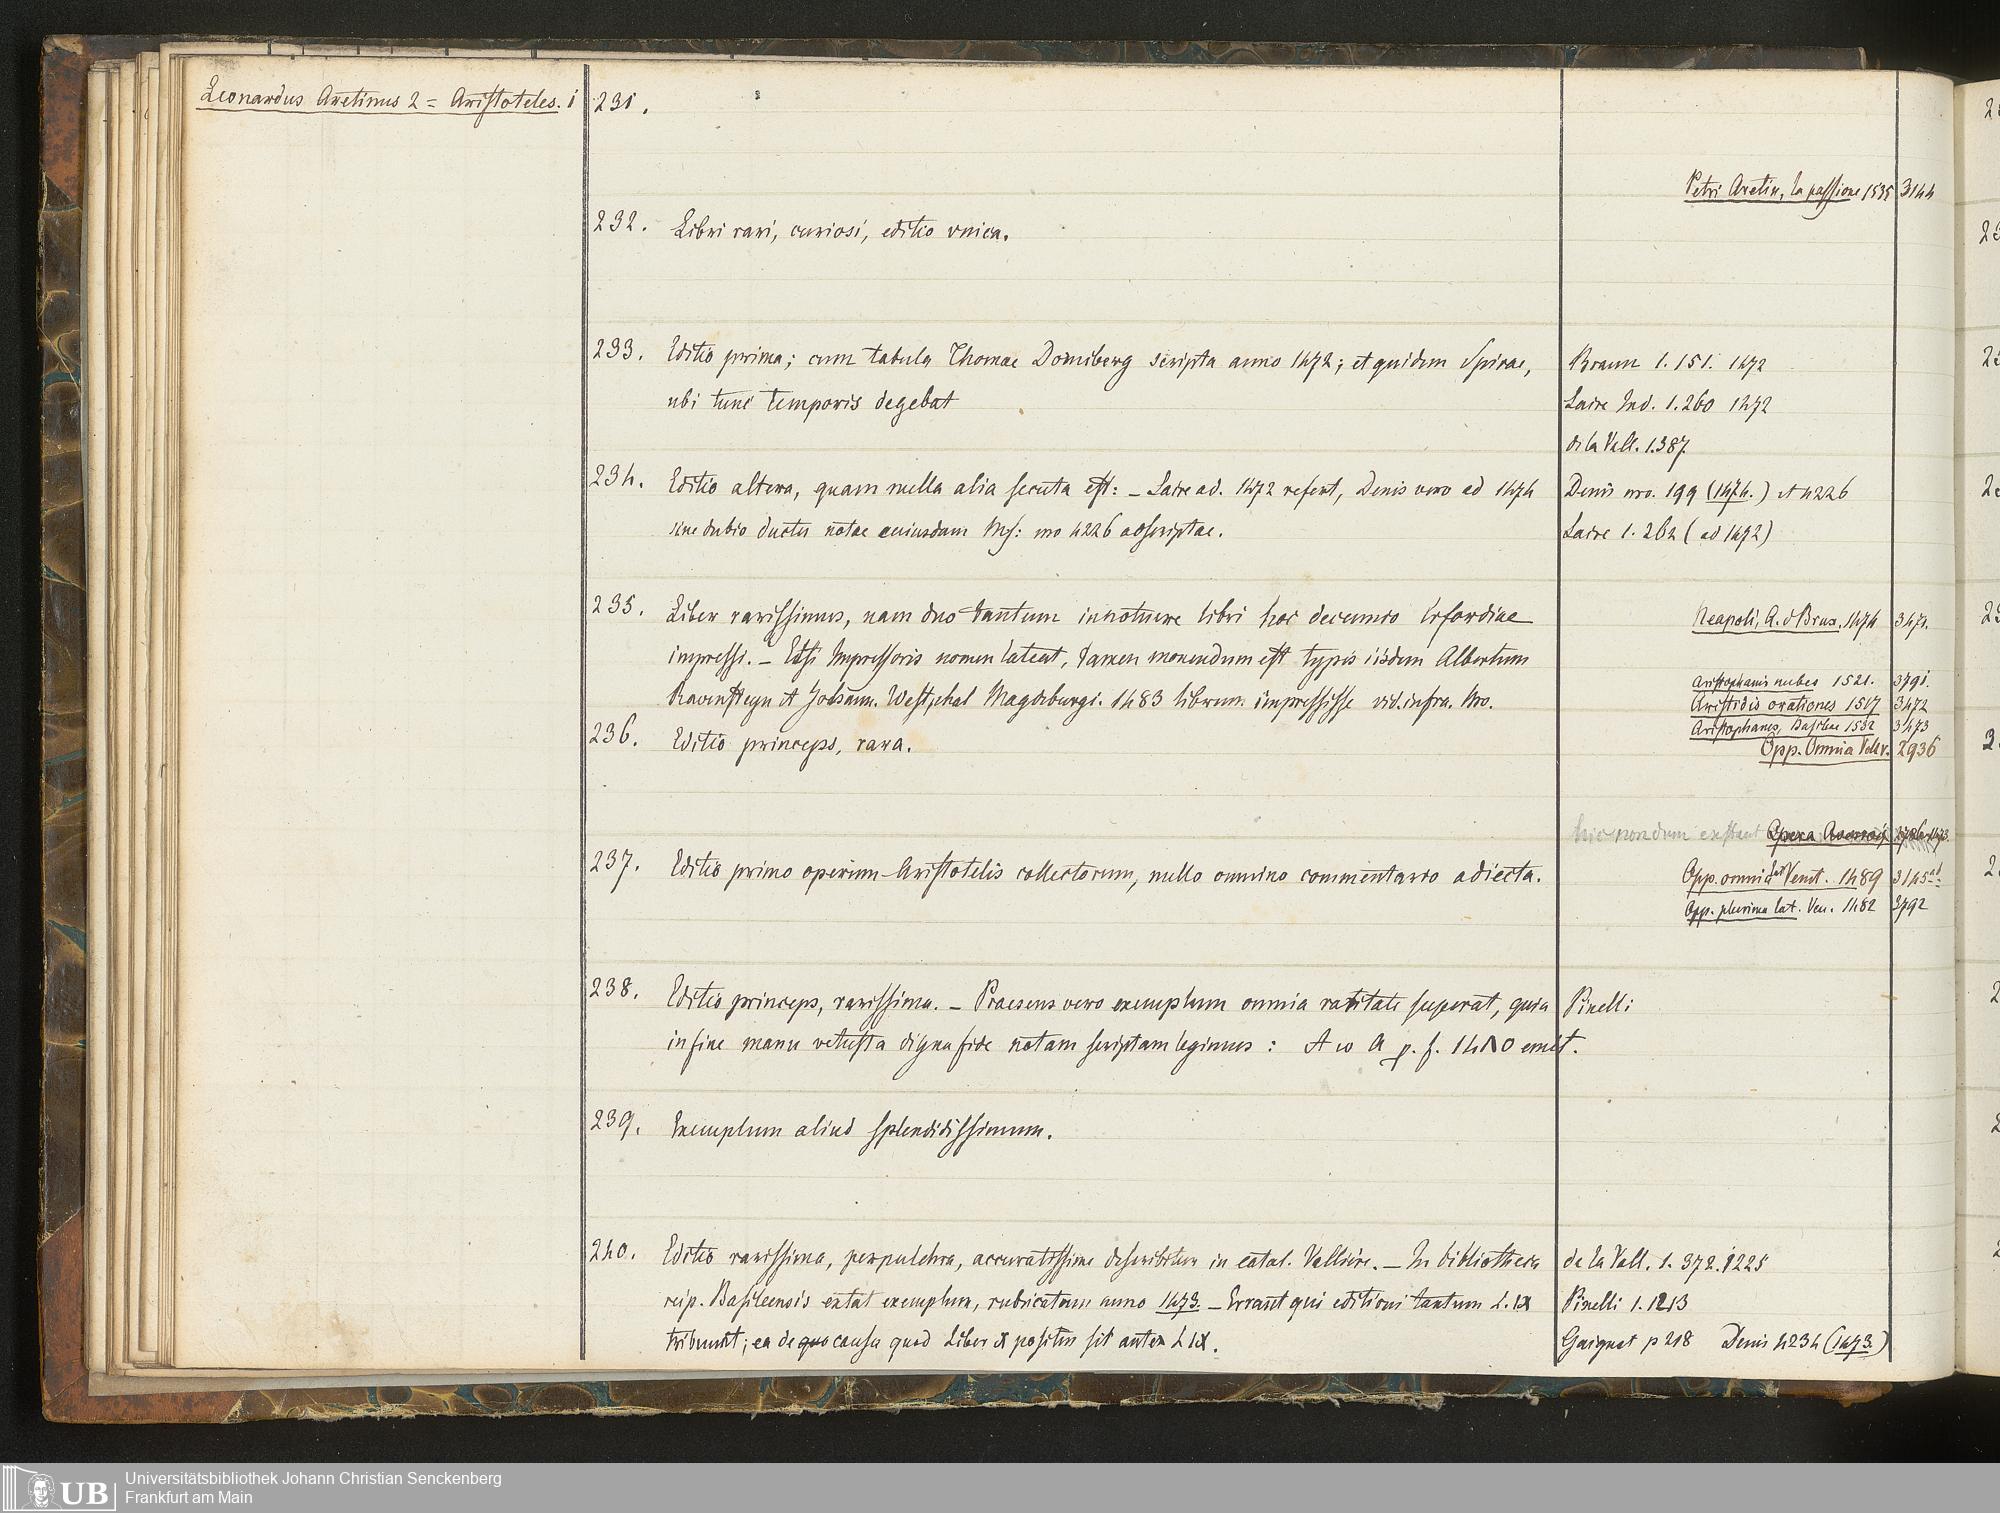 Leonardus Aretinus 2 = Aristoteles. 1
231.
Petri Aretin, la passione 1535 3144
232. Libri rari, curiosi, editio vnica.
233. Editio prima; cum tabula Thomae Dorniberg scripta anno 1472; et quidem Spirae,
ubi tunc temporis degebat
Braun 1. 151. 1472
Laire Ind. 1. 260 1472
de la Vall. 1.387.
234. Editio altera, quam nulla alia secuta est: – Laire ad. 1472 refert, Denis vero ad 1474
sine dubio ductus notae cuiusdam Ms: nro 4226 adscriptae.
Denis nro. 199 (1474.) et 4226
Laire 1. 262 (ad 1472)
235. Liber rarissimus, nam duo tantum innotuere libri hoc decennio Erfordiae
impressi. – Etsi Impressoris nomen lateat, tamen monendum est typis iisdem Albertum
Ravensteyn et Johann. Westphal Magdeburgi. 1483 librum impressisse vid. infra. Nro.
Neapoli, A. d Brux. 1474 3471.
Aristophanis nubes 1521. 3791.
Aristidis orationes 1517 3472
Aristophanes, Basileae 1532 3473
236. Editio princeps, rara.
Opp. Omnia 2936
hic nondum exstant Opera
237. Editio primo operum Aristotelis collectorum, nullo omnino commentario adiecta.
Opp. omnia lat Venet. 1489 3145
Opp. plurima lat. Ven. 1482 3792
238. Editio princeps, rarissima. – Praesens vero exemplum omnia raritate superat, quia
in fine manu vetusta digna fide notam scriptam legimus: p. f. 14Λ0 emit.
Pinelli
239. Exemplum aliud splendidissimum.
240. Editio rarissima, perpulchra, accuratissime describitur in catal. Valliere. – In bibliotheca
reip. Basileensis extat exemplum, rubricatum anno 1473. – Errant qui editioni tantum L. IX
tribuunt; ea de quo causa quod Liber X positus sit antea L IX.
de la Vall. 1. 372. 1225
Pinelli 1. 1213
Gaignat p 218 Denis 4234 (1473.)
UB Universitätsbibliothek Johann Christian Senckenberg
Frankfurt am Main